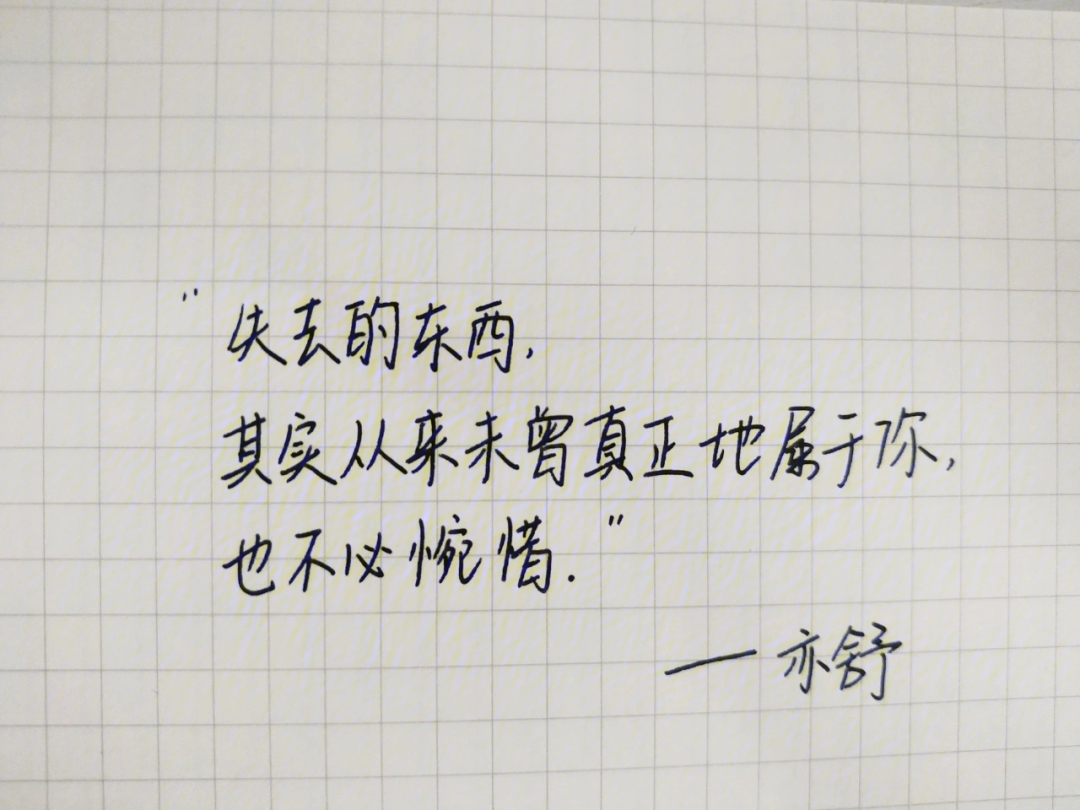 "失去的东西,
其实从来未曾真正地属于你,
也不必惋惜."
—亦舒